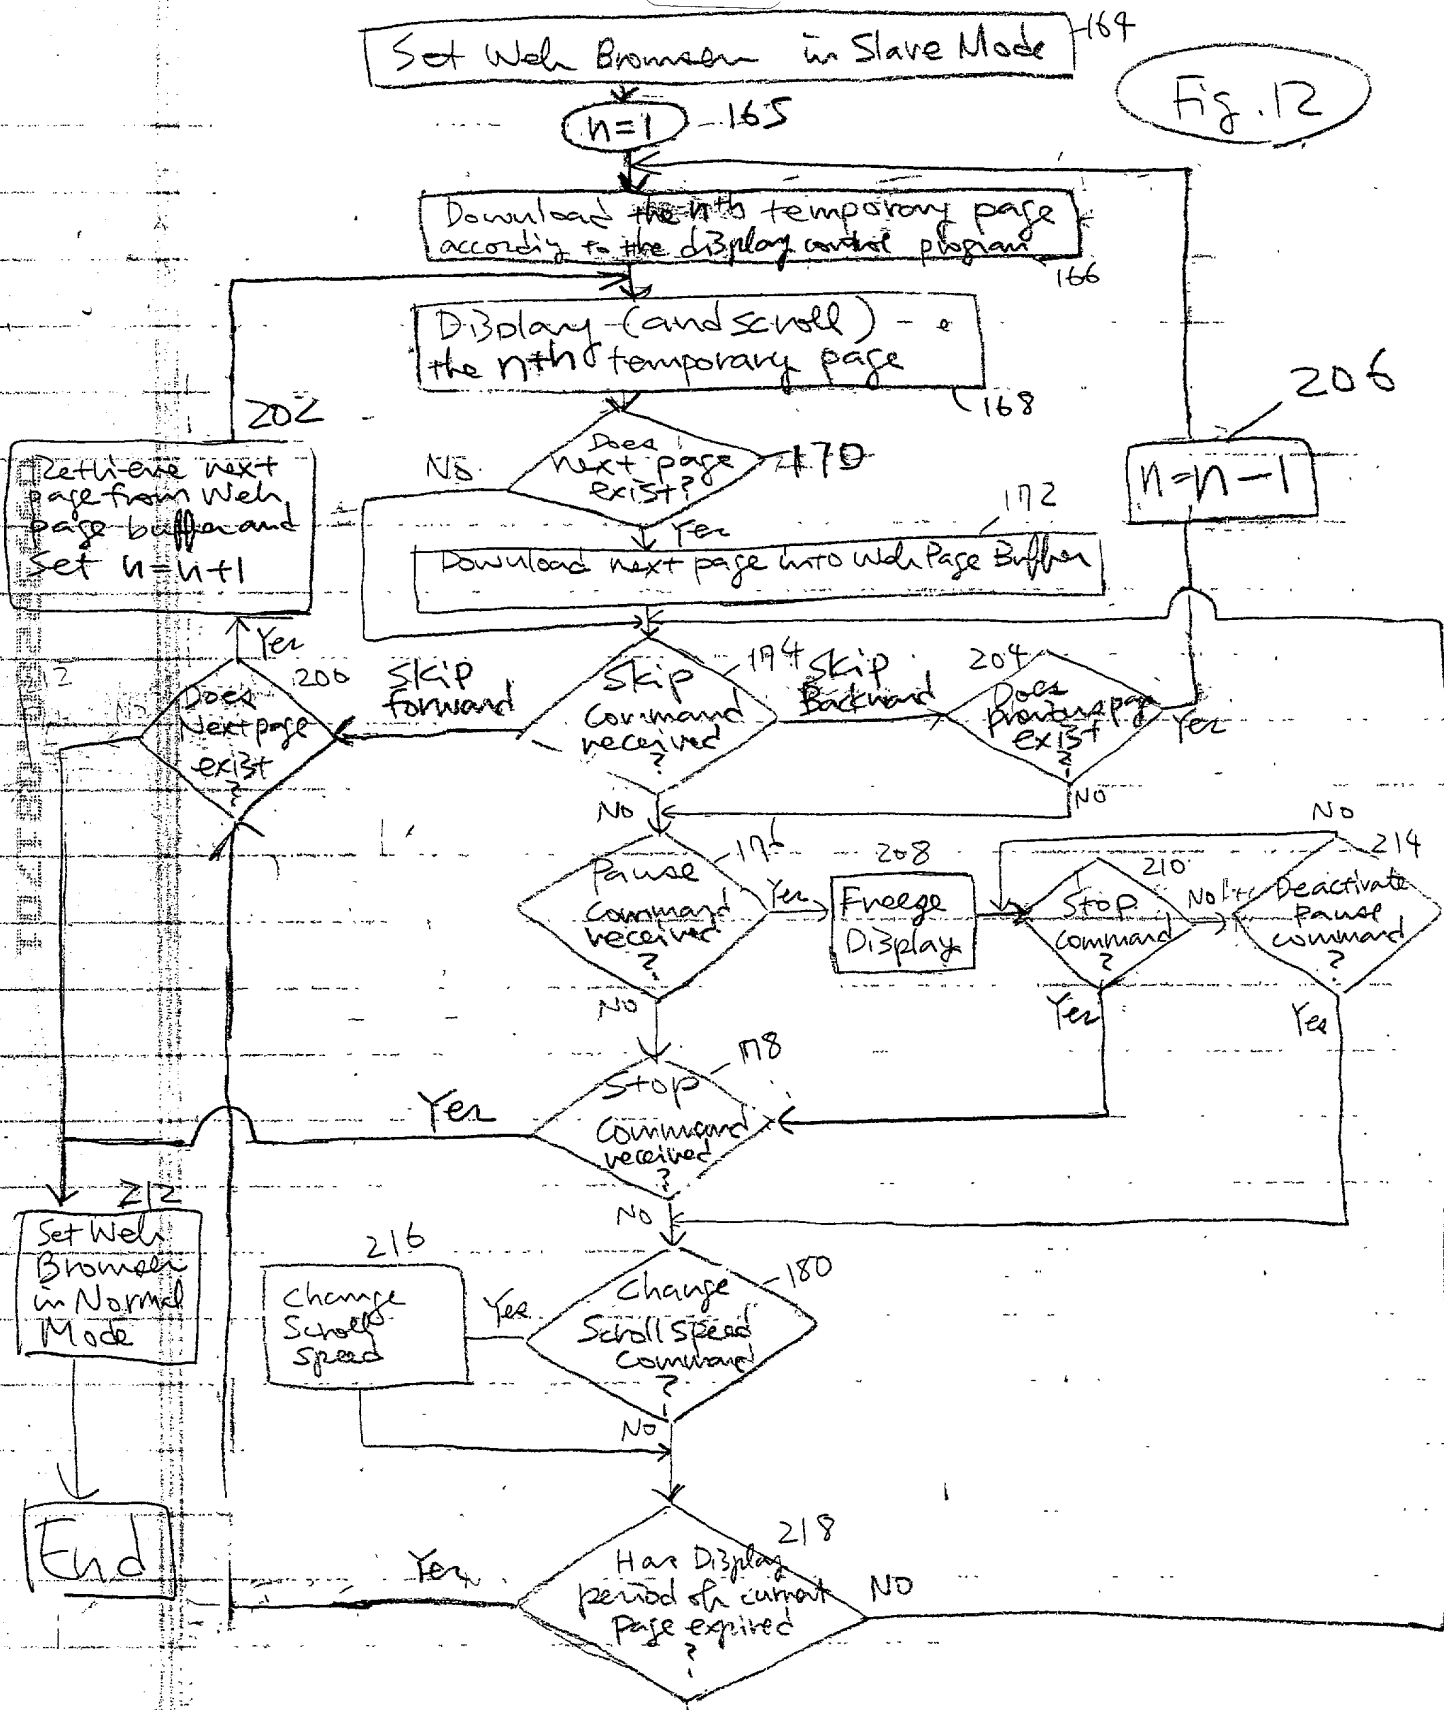 Set Web Browser in Slave Mode
164
Fig. 12
n=1
165
Download the nth temporary page
according to the display control program
166
Display (and scroll)
the nth temporary page
168
206
202
Does
next page
exist?
170
No
Yes
n=n-1
Retrieve next
page from Web
page buffer and
Set n=n+1
172
Download next page into Web Page Buffer
Yes
200
Does
Next page
exist
?
No
212
Skip
forward
174
Skip
Command
received
?
Skip
Backward
204
Does
previous page
exist
?
Yes
No
No
176
Pause
Command
received
?
Yes
208
Freeze
Display
210
Stop
command
?
No
214
Deactivate
pause
command
?
No
No
Yes
Yes
178
Stop
Command
received
?
Yes
212
Set Web
Browser
in Normal
Mode
No
216
Change
Scroll
speed
Yes
180
Change
Scroll speed
Command
?
No
End
218
Has Display
period of current
page expired
?
Yes
NO